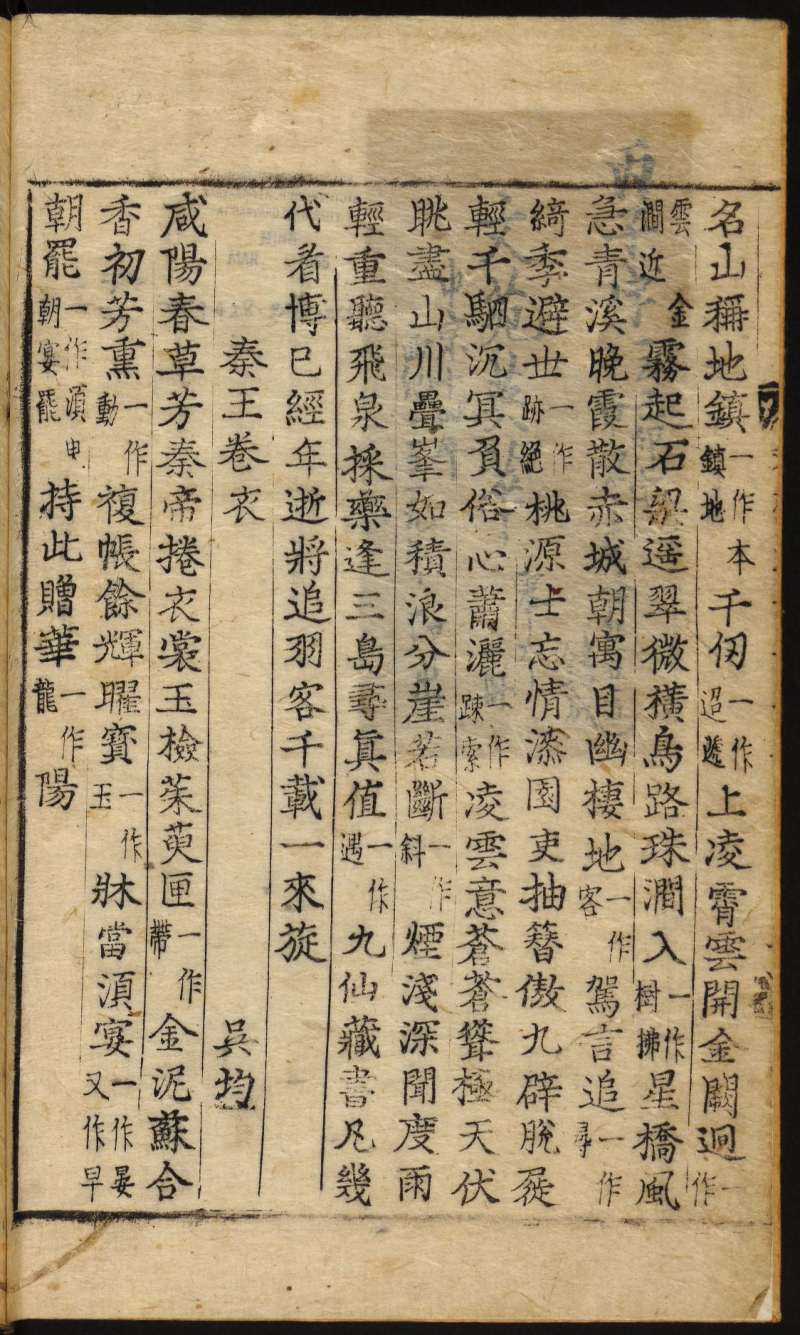 名山稱地鎮一作本鎮地千仞一作迢遰上凌霄雲開金闕迥一作
雲澗近金霧起石梁遥翠微橫鳥路珠澗入一作樹拂星橋風
急青溪晚霞散赤城朝寓目幽棲地一作客駕言追一作尋
綺季避世一作跡絕桃源士忘情漆園吏抽簪傲九辟脫屣
輕千駟沉冥負俗心蕭灑一作踈索凌雲意蒼蒼聳極天伏
眺盡山川疊峯如積浪分崖若斷一作斜煙淺深聞度雨
輕重聽飛泉採藥逢三島尋真值一作遇九仙藏書凡幾
代看博已經年逝將追羽客千載一來旋
秦王卷衣 吳均
咸陽春草芳秦帝捲衣裳玉檢茱萸匣一作帶金泥蘇合
香初芳熏一作動複帳餘輝曜寳一作玉牀當湏宴一作晏又作早
朝罷一作湏申朝宴罷持此贈華一作龍陽